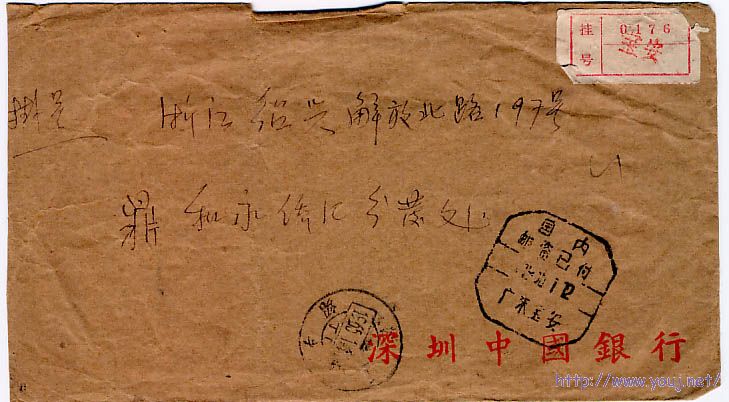 挂 0176
号 宝安
掛号
浙江绍兴解放北路197号
鼎和永侨汇分发处
国内
邮资已付
12
广东宝安
深圳中國銀行
http://www.youj.net/